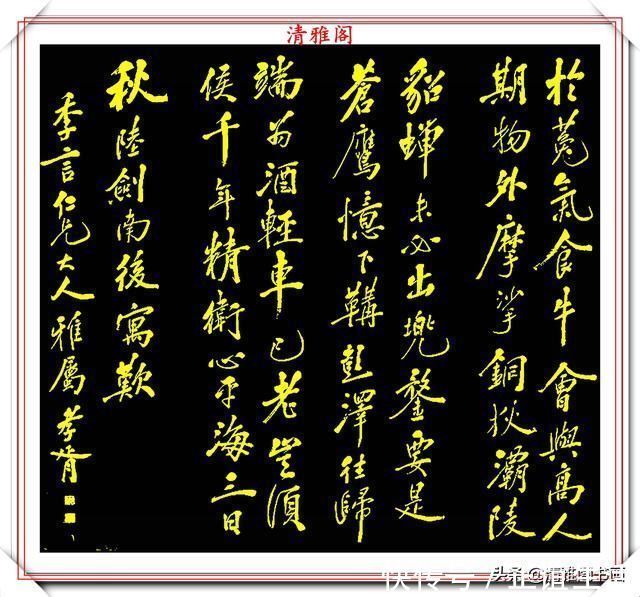 清雅阁
於菟氣食牛會與高人
期物外摩挲銅狄灞陵
貂蟬未必出兜鍪要是
蒼鷹憶下鞲彭澤往歸
端为酒輕車已老豈須
侯千年精衛心平海三日
秋陸劍南後寓歎
季言仁兄大人雅屬孝胥
头条@清雅阁书画
快传号/